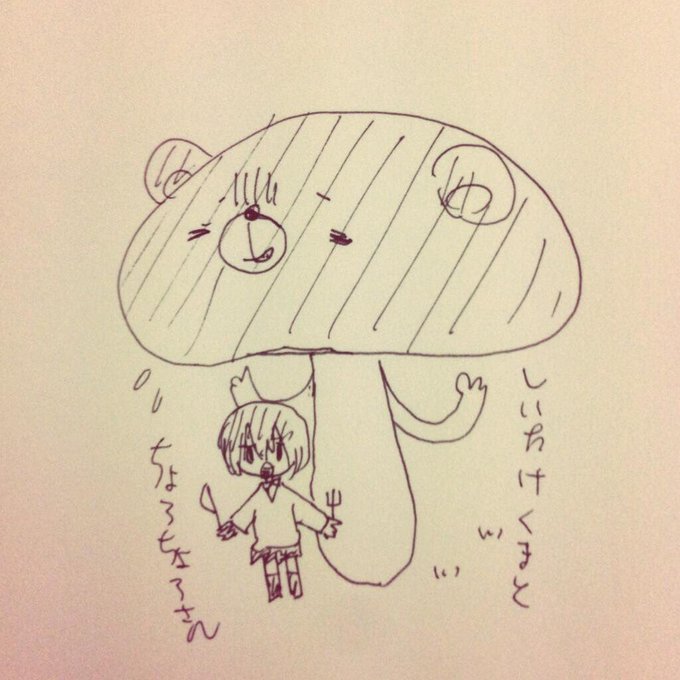 しいたけくまと
ちょろちょろさん